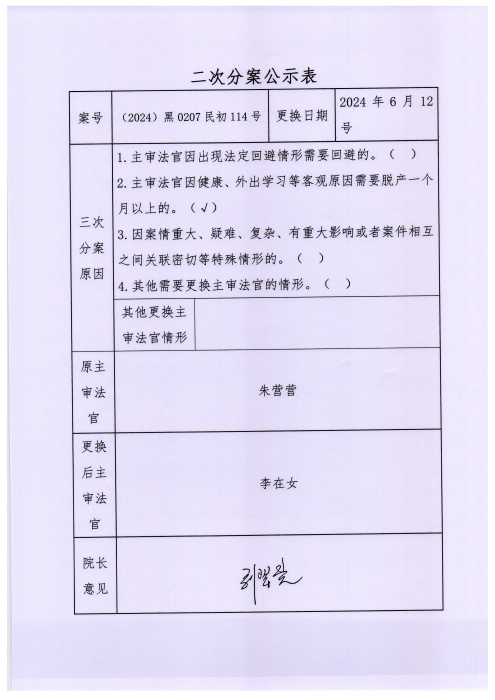 二次分案公示表
案号
（2024）黑0207民初114号
更换日期
2024 年 6 月 12
号
三次
分案
原因
1.主审法官因出现法定回避情形需要回避的。（ ）
2.主审法官因健康、外出学习等客观原因需要脱产一个
月以上的。（√）
3.因案情重大、疑难、复杂、有重大影响或者案件相互
之间关联密切等特殊情形的。（ ）
4.其他需要更换主审法官的情形。（ ）
其他更换主
审法官情形
原主
审法
官
朱营营
更换
后主
审法
官
李在女
院长
意见